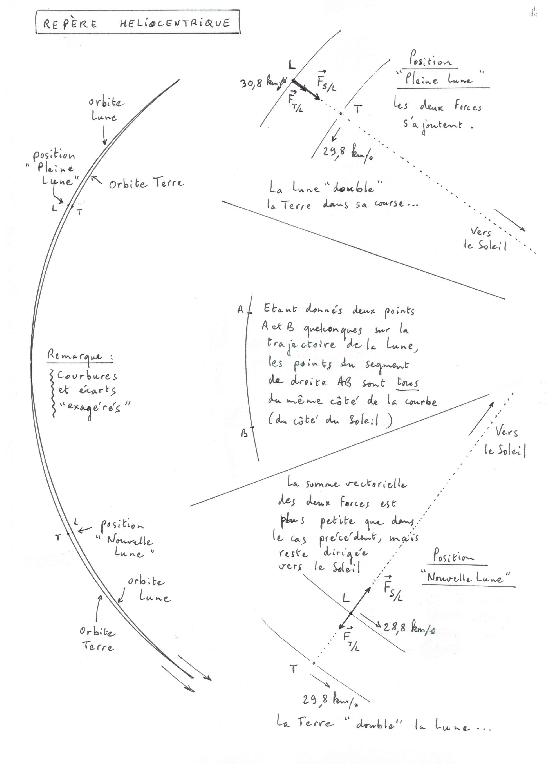 REPÈRE HELIOCENTRIQUE
orbite
Lune
position
"Pleine
Lune"
orbite Terre
L
T
Remarque :
Courbures
et écarts
"exagérés"
L
T
position
"Nouvelle
Lune"
orbite
Lune
orbite
Terre
L
30,8 km/s
F S/L
F T/L
T
29,8 km/s
Position
"Pleine Lune"
les deux forces
s'ajoutent.
La Lune "double"
la Terre dans sa course...
vers
le Soleil
A
B
Etant donnés deux points
A et B quelconques sur la
trajectoire de la Lune,
les points du segment
de droite AB sont tous
du même côté de la courbe
(du côté du Soleil)
Vers
le Soleil
La somme vectorielle
des deux forces est
plus petite que dans
le cas précédent, mais
reste dirigée
vers le Soleil
Position
"Nouvelle Lune"
L
F S/L
F T/L
28,8 km/s
T
29,8 km/s
La Terre "double" la Lune...